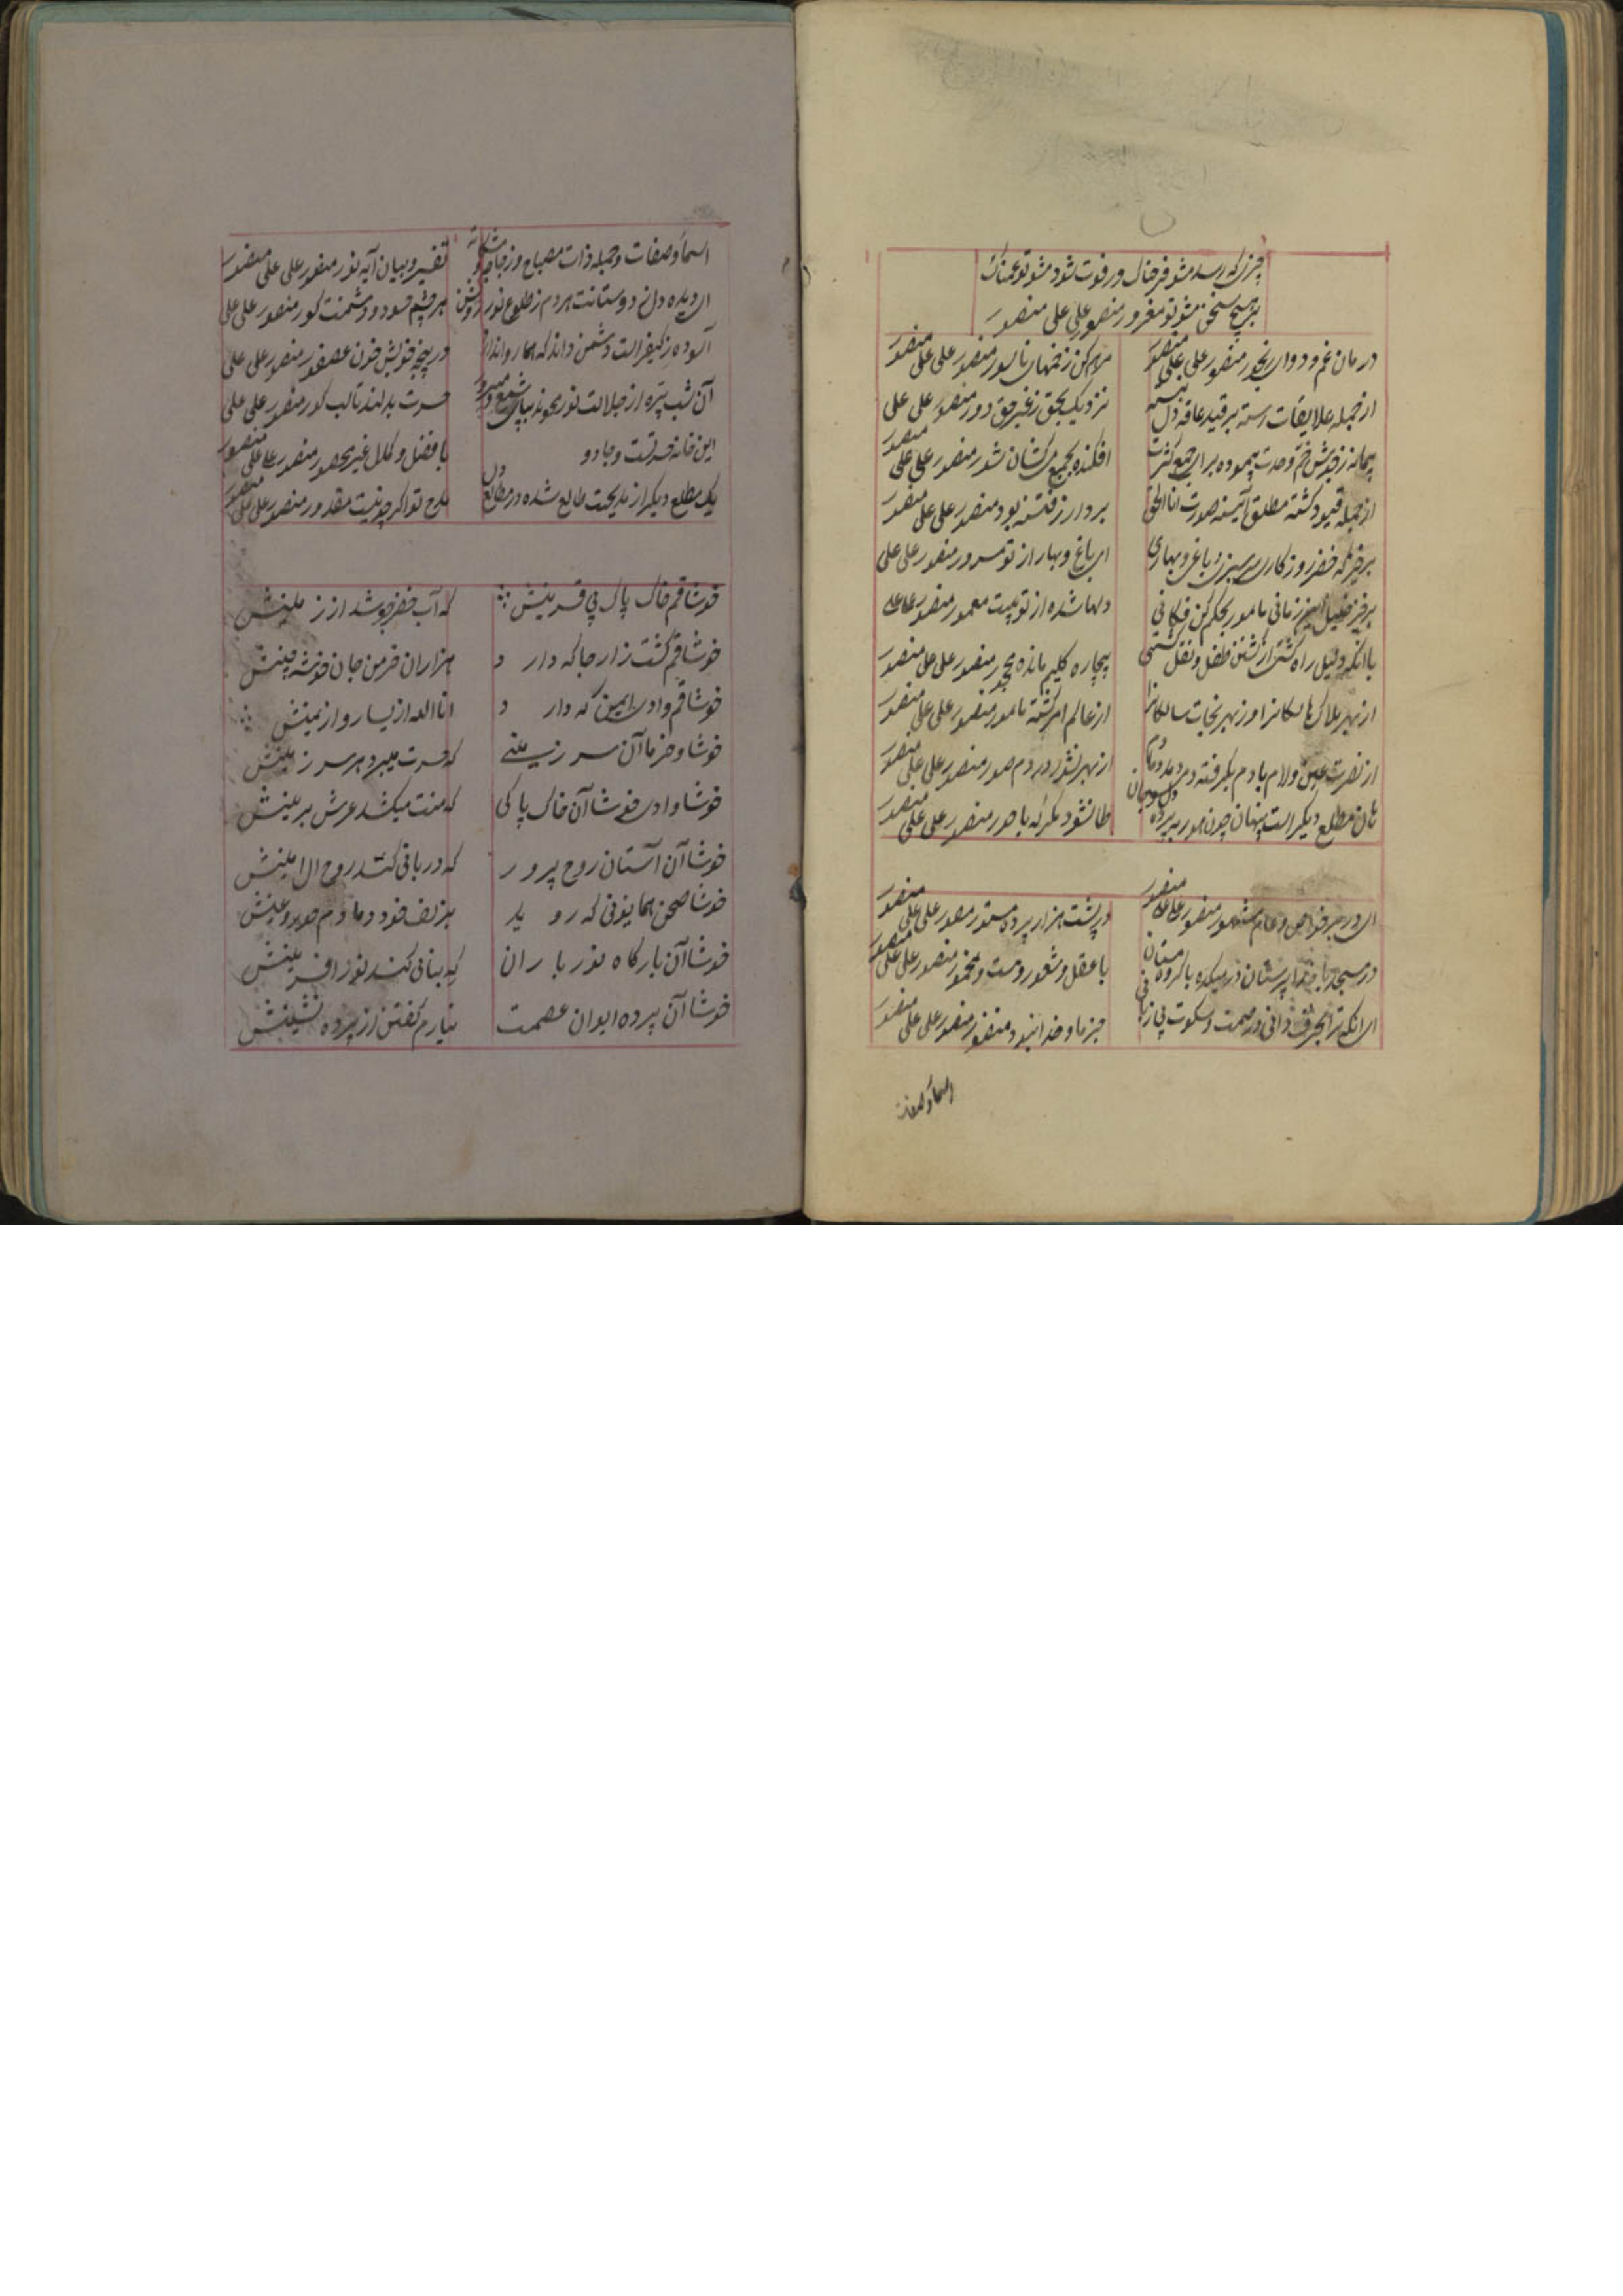 چیزی که رسد مشو فرحناک ور فوت شود مشو تو غمناک
بر هیچ سخن مشو تو مغرور منصور علی علی منصور
درمان غم و دوای رنجور منصور علی علی منصور
مرهم کن زخمهای ناسور منصور علی علی منصور
از جمله علایقات رسته بر قید عاقه دل بسته
نزدیک بحق ز غیر حق دور منصور علی علی
پیمانه ز خویش خم وحدت پیموده برای جمع کثرت
افکنده بجمع میکشان شور منصور علی علی منصور
از جمله قیود گشته مطلق آئینه صورت اناالحق
بر دار ز فتنه بود منصور علی علی منصور
برخیز که خضر روزگاری سرسبزی باغ و بهاری
ای باغ و بهار از تو مسرور منصور علی علی
برخیز خلیل این زمانی مامور بحکم کن فکانی
دلها شده از تو بیت معمور منصور علی علی
با آنکه دلیل راه گشتی از کشتن طفل و نقل کشتی
بیچاره کلیم مانده مهجور منصور علی علی منصور
از بهر هلاک هالکانرا وز بهر نجات سالکانرا
از عالم امر گشته مامور منصور علی علی منصور
از نصرت عین و لام با دم بگرفته دم
از بهر نشور در دم صور منصور علی علی منصور
هان مطلع دیگر است پنهان چون حور به پرده دل و جان
طالشود مگر که با حور منصور علی علی منصور
ای در بر خواص و عام مشهور منصور علی علی منصور
در پشت هزار پرده مستور منصور علی علی منصور
در مسجد با خدا پرستان در میکده با گروه مستان
با عقل و شعور و مست و مخمور منصور علی علی منصور
ای آنکه تو بحرف دانی در صمت و سکوت بی زبانی
جز ما و خدا نبود منظور منصور علی علی منصور
اسماء و صفات
اسماء و صفات و جمله ذات مصباح و زجاجه و مشکاة
تفسیر و بیان آیه نور منصور علی علی منصور
ای دیده دل دوستانت هر دم ز طلوع نور روشن
هر چشم حسود و دشمنت کور منصور علی علی
آلوده ز کیفر است دشمن داند که
در پنجه خویش خون عصفور منصور علی علی
آن شب پره از جلالت نور
حسرت بدلند تالب گور منصور علی علی
این خانه و جادو
با فضل و کمال غیر محصور منصور علی علی منصور
یک مطلع دیگر از مدیحت طالع شده در مطالع دل
مدح تو اگر چه نیست مقدور منصور علی علی منصور
خوشا قم خاک پاک بی قرینش
که آب خضر جوشد از زمینش
خوشا قم کشت زار جا که دارد
هزاران خرمن جان خوشه چینش
خوشا قم وادی ایمن که دارد
انا الله از یسار و از یمینش
خوشا و خرما آن سرزمینی
که حسرت میبرد هر سرزمینش
خوشا وادی خوشا آن خاک پاکی
که منت میکشد عرش برینش
خوشا آن آستان روح پرور
که دربانی کند روح الامینش
خوشا صحن همایونی که روید
بزلف خود دمادم حور و عینش
خوشا آن بارگاه نور باران
که بنائی کند نور آفرینش
خوشا آن پرده ایوان عصمت
نیارم گفتن از پرده نشینش